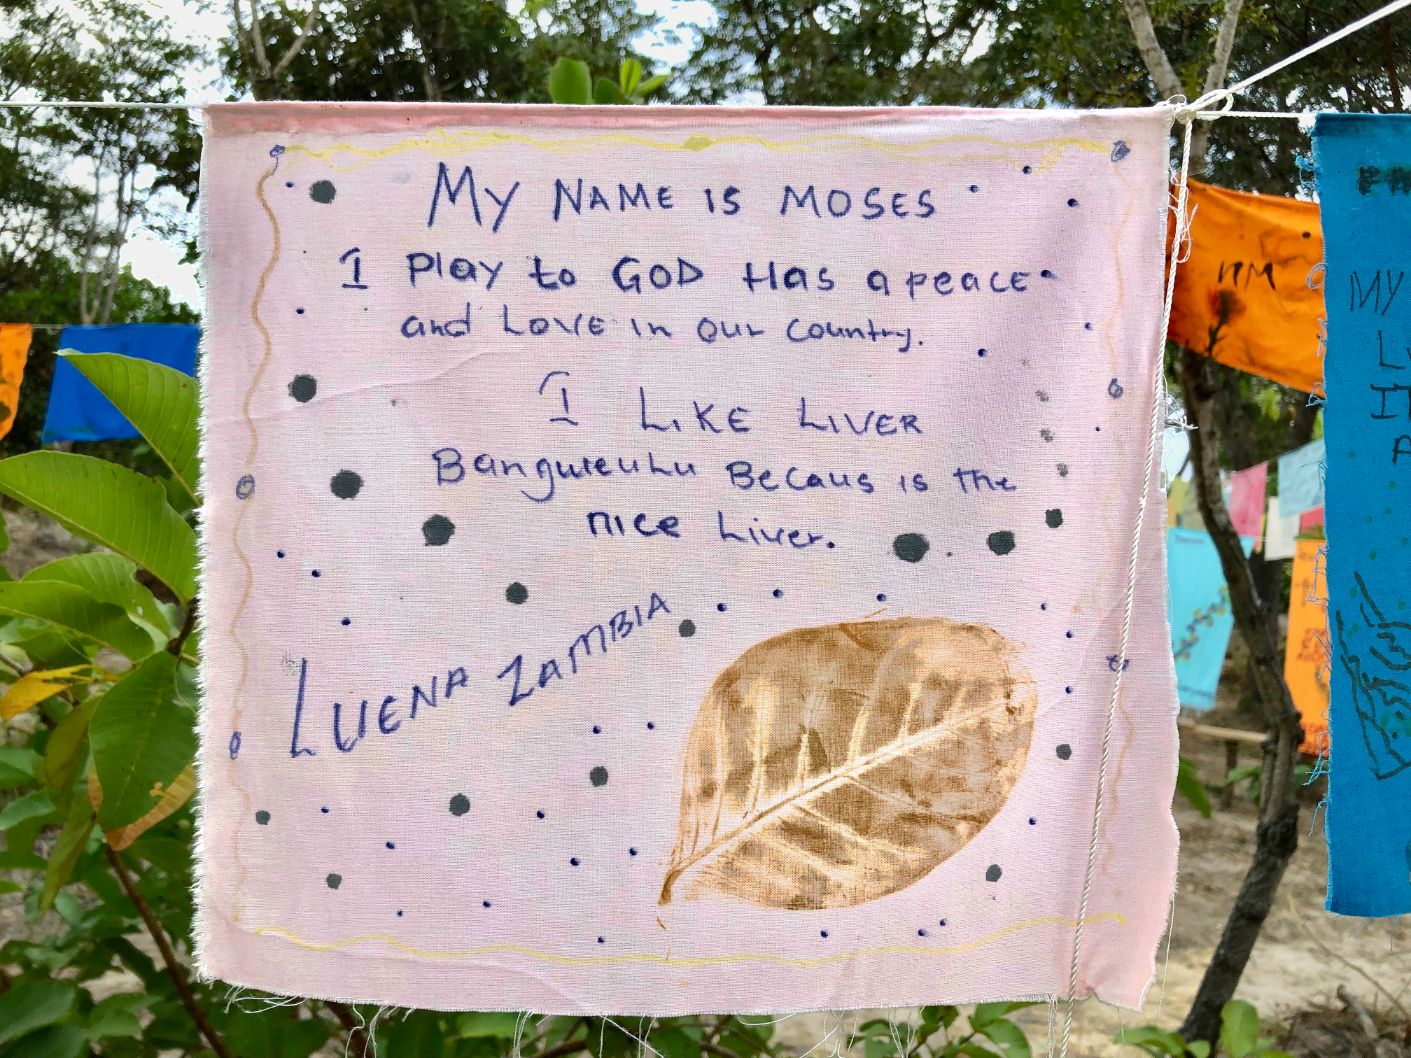 My NAME is MOSES
I Play to GOD Has a peace
and LOVE in our country.
I LIKE LIVER
Bangweulu BeCaus is the
nice Liver.
LUENA ZAMBIA
MY